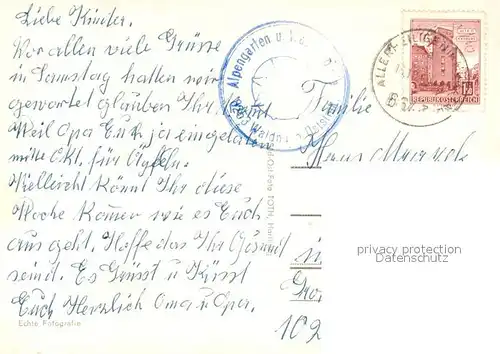 Liebe Kinder.
Vor allen viele Grüsse
in Samstag hatten wir
gewartet glauben Ihr kommt
Weil Opa Euch ja eingeladen
mitte Okt. für Äpfeln.
Vielleicht könnt Ihr diese
Woche kommen wie es Euch
aus geht. Hoffe das Ihr Gesund
seind. Es Grüsst u Küsst
Euch Herzlich Oma u Opa.
Echte Fotografie
Alpengarten u.
ALLERHEILIGEN
REPUBLIK ÖSTERREICH
Familie
Hans
in
102
privacy protection
Datenschutz